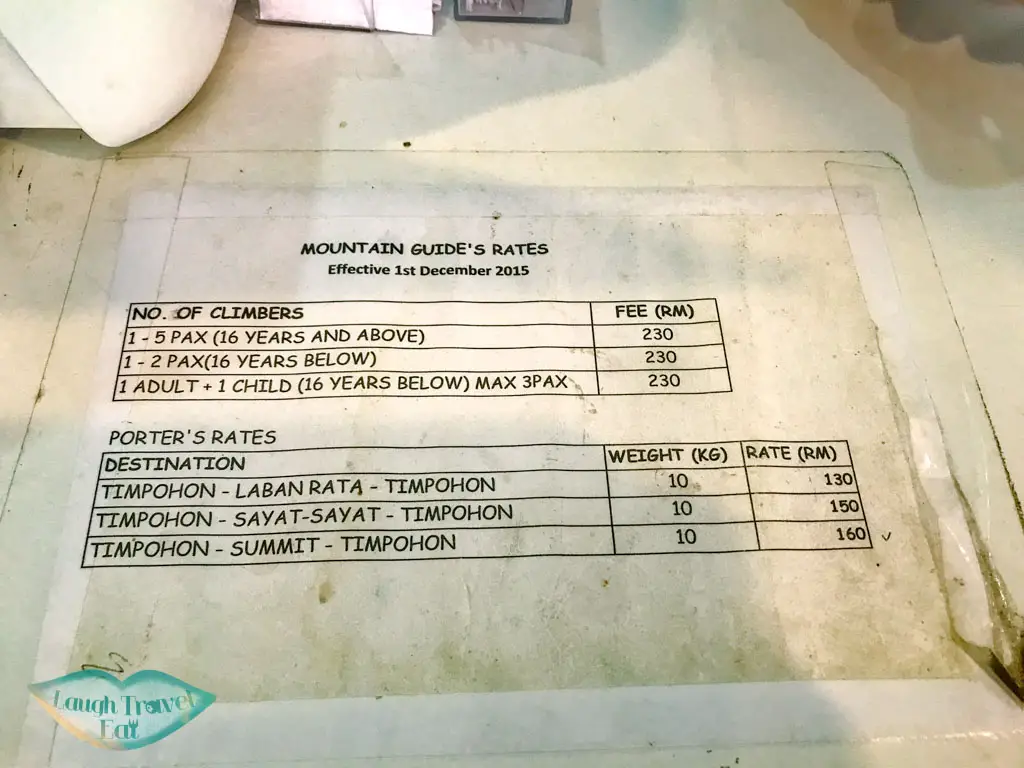 MOUNTAIN GUIDE'S RATES
Effective 1st December 2015
NO. OF CLIMBERS FEE (RM)
1 - 5 PAX (16 YEARS AND ABOVE) 230
1 - 2 PAX(16 YEARS BELOW) 230
1 ADULT + 1 CHILD (16 YEARS BELOW) MAX 3PAX 230
PORTER'S RATES
DESTINATION WEIGHT (KG) RATE (RM)
TIMPOHON - LABAN RATA - TIMPOHON 10 130
TIMPOHON - SAYAT-SAYAT - TIMPOHON 10 150
TIMPOHON - SUMMIT - TIMPOHON 10 160
Laugh Travel
Eat